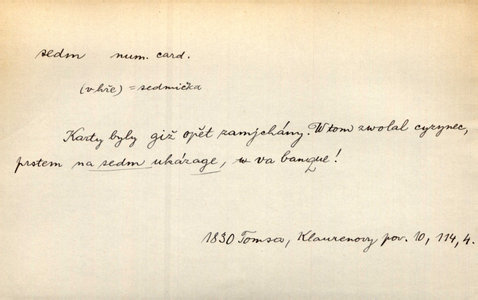 sedm num. card.
(v hře) = sedmička
Karty byly giž opět zamjchány. W tom zwolal cyzynec,
prstem na sedm ukázage, w va banque!
1830 Tomsa, Klaurenovy pov. 10, 114, 4.